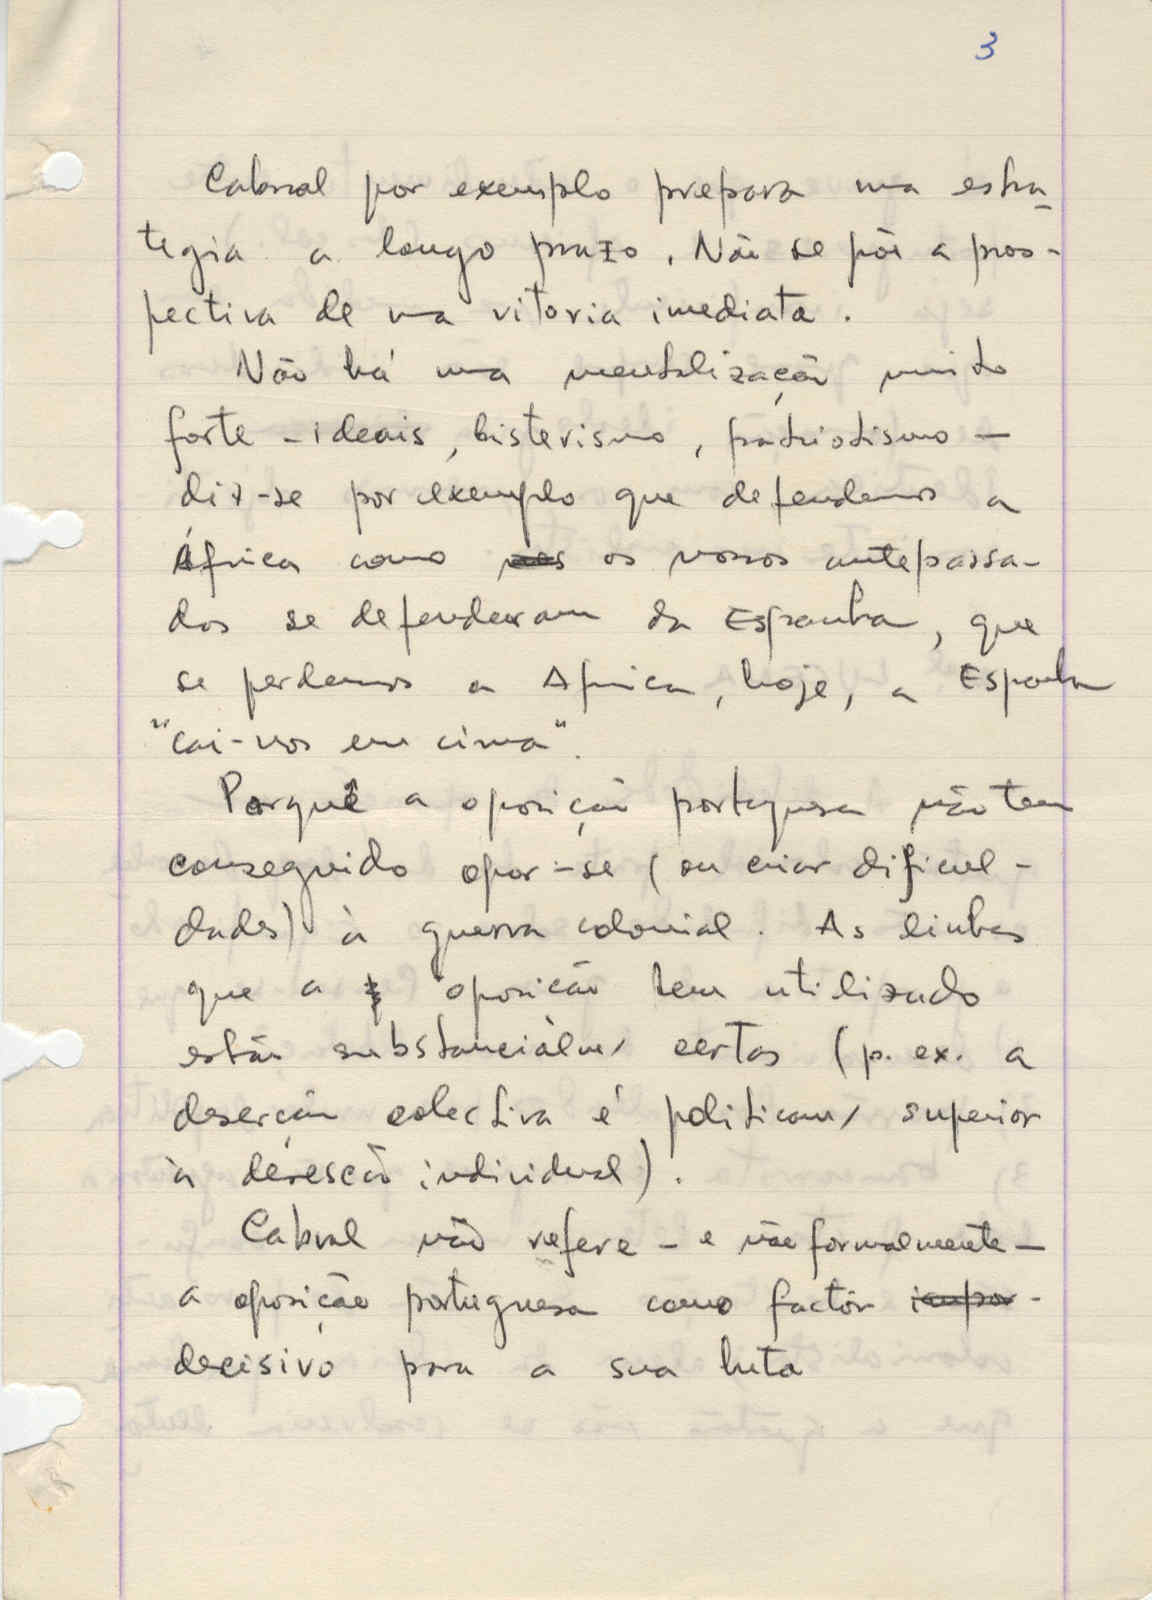 3
Cabral por exemplo prepara uma estra-
tegia a longo prazo. Não se põe a pros-
pectiva de uma vitoria imediata.
Não há uma mentalização muito
forte - ideais, histerismo, patriotismo -
diz-se por exemplo que defendemos a
África como nos os nossos antepassa-
dos se defenderam da Espanha, que
se perdemos a Africa, hoje, a Espanha
"cai-nos em cima".
Porquê a oposição portuguesa não tem
conseguido opor-se (ou criar dificul-
dades) à guerra colonial. As linhas
que a oposição tem utilizado
estão substancialm/ certas (p. ex. a
deserção colectiva é politicam/ superior
à deresção individual).
Cabral não refere - e não formalmente -
a oposição portuguesa como factor impor-
decisivo para a sua luta